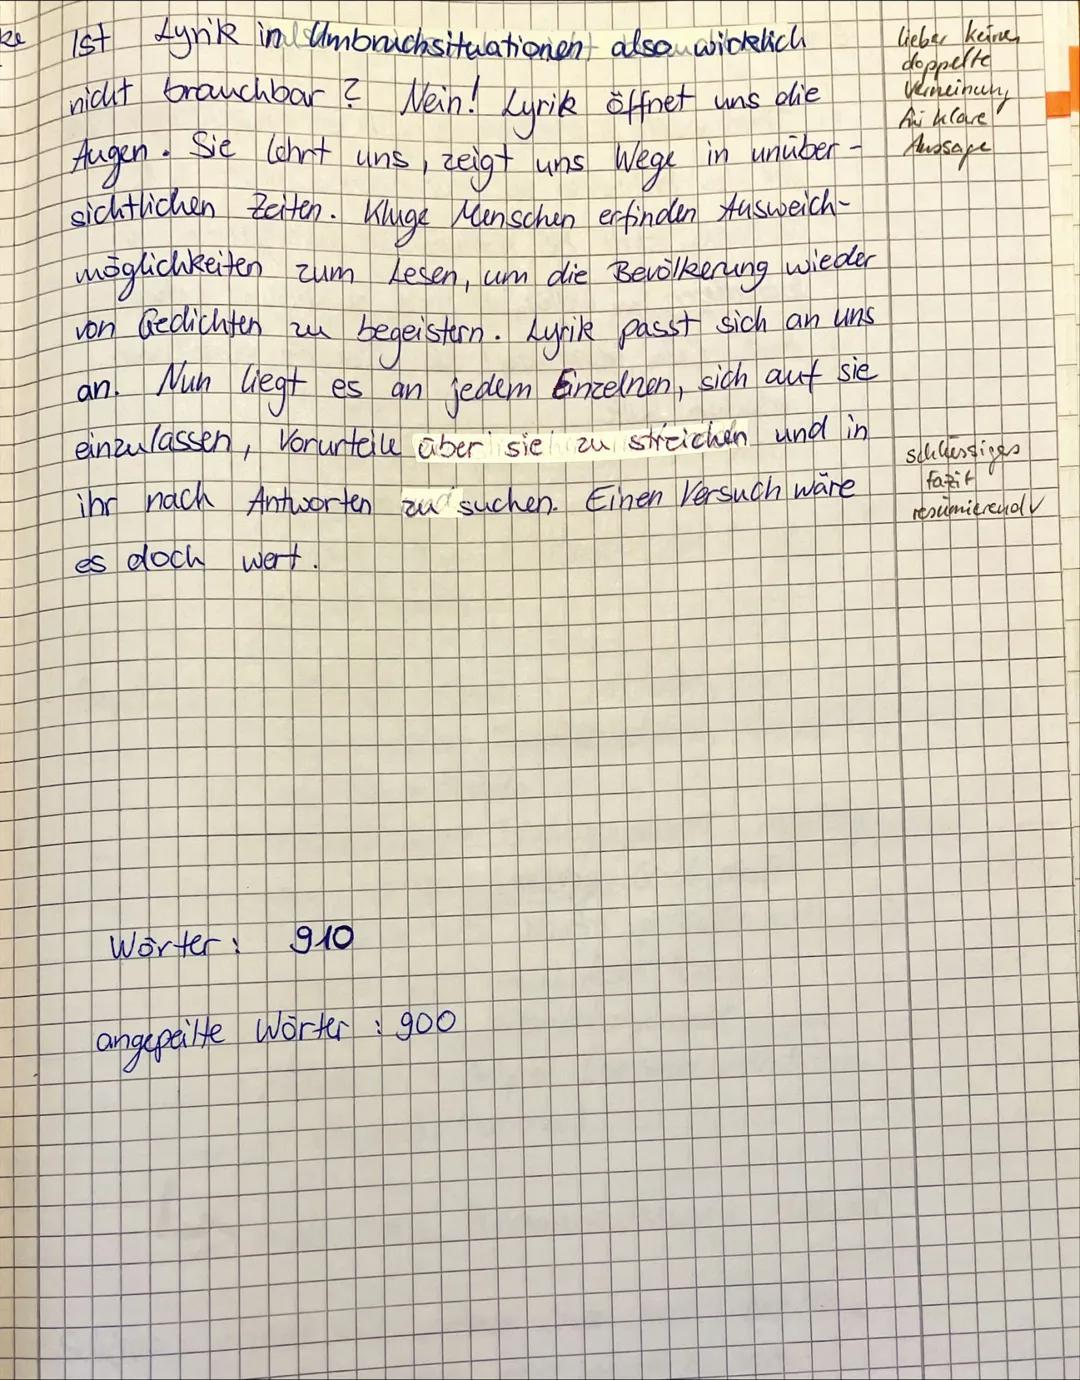 Ist Lyrik in Umbruchsituationen also wirklich
nicht brauchbar? Nein! Lyrik öffnet uns die
Augen. Sie lehrt uns, zeigt uns Wege in unüber-
sichtlichen Zeiten. Kluge Menschen erfinden Ausweich-
möglichkeiten zum Lesen, um die Bevölkerung wieder
von Gedichten zu begeistern. Lyrik passt sich an uns
an. Nun liegt es an jedem Einzelnen, sich auf sie
einzulassen, Vorurteile über sie zu streichen und in
ihr nach Antworten zu suchen. Einen Versuch wäre
es doch wert.
lieber keine
doppelte
Verneinung
für klare
Aussage
schlüssiges
Fazit
resümierend √
Wörter: 910
angepeilte Wörter: 900